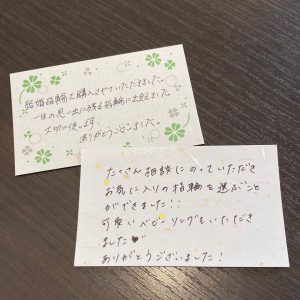 結婚指輪を購入させていただきました。
一生の思い出に残る指輪に出会えました。
大切に使います。
ありがとうございました。
たくさん相談にのっていただき
お気に入りの指輪を選ぶこと
ができました!!
可愛いベビーリングもいただき
ました♥
ありがとうございました!